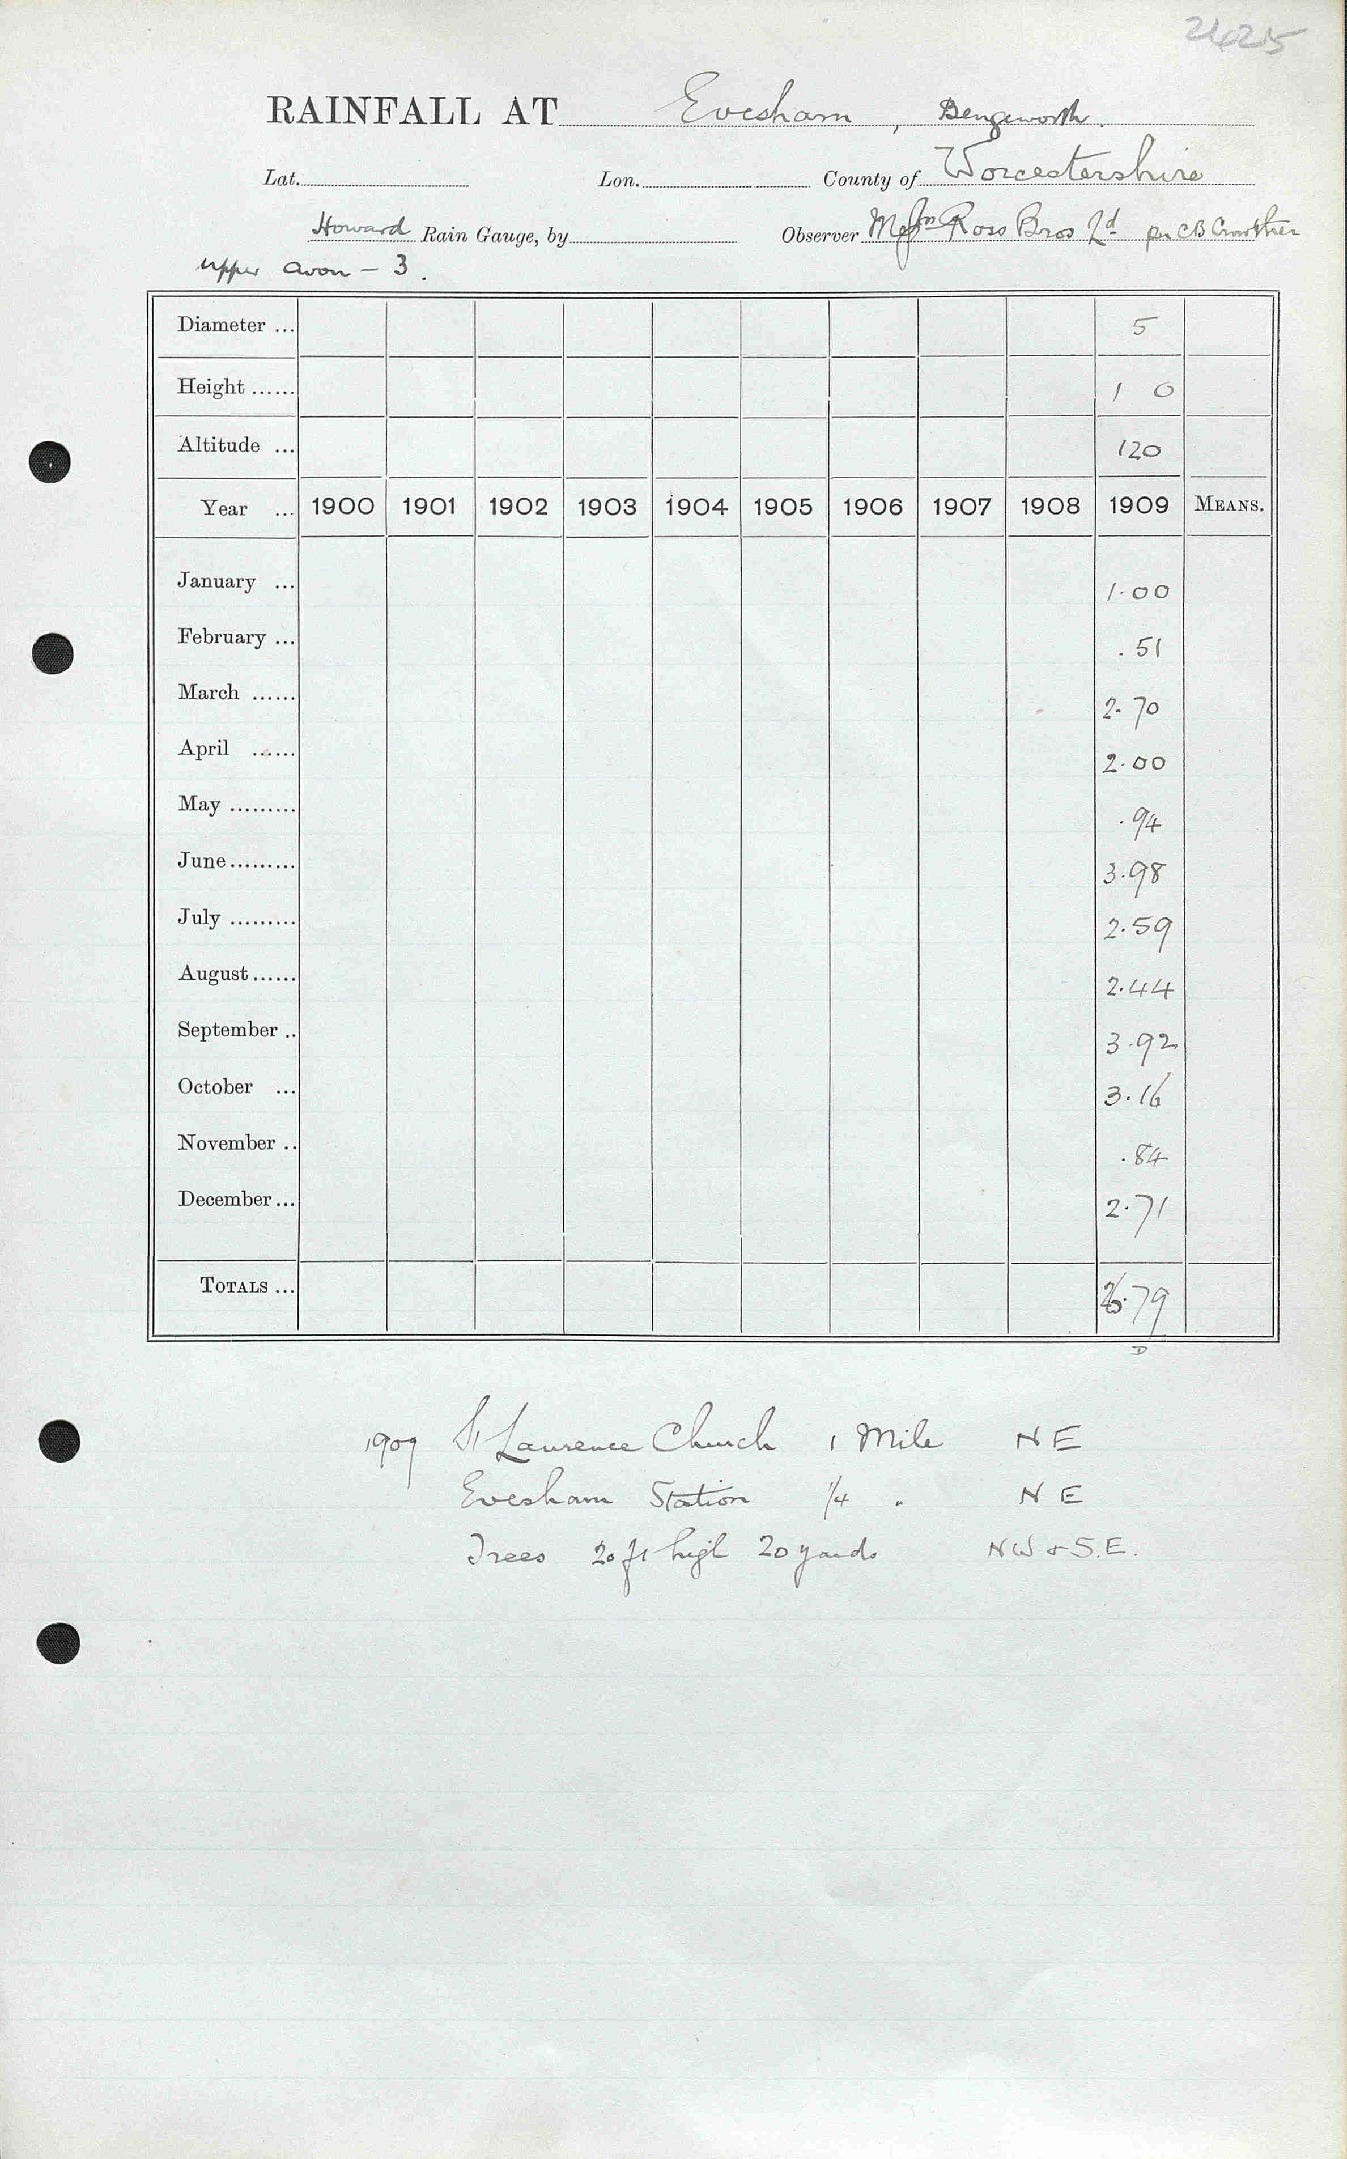 2425
RAINFALL AT Evesham, Bengeworth.
Lat. Lon. County of Worcestershire
Howard Rain Gauge, by Observer Messrs Ross Bros Ld per CB Crowther
Upper Avon - 3.
Diameter ... 5
Height ...... 1 0
Altitude ... 120
Year ... 1900 1901 1902 1903 1904 1905 1906 1907 1908 1909 MEANS.
January ... 1.00
February ... .51
March ...... 2.70
April ...... 2.00
May ......... .94
June ......... 3.98
July ......... 2.59
August ...... 2.44
September .. 3.92
October ... 3.16
November .. .84
December ... 2.71
TOTALS ... 26.79
D
1909 St Laurence Church 1 Mile NE
Evesham Station 1/4 " NE
Trees 20 ft high 20 yards NW & S.E.